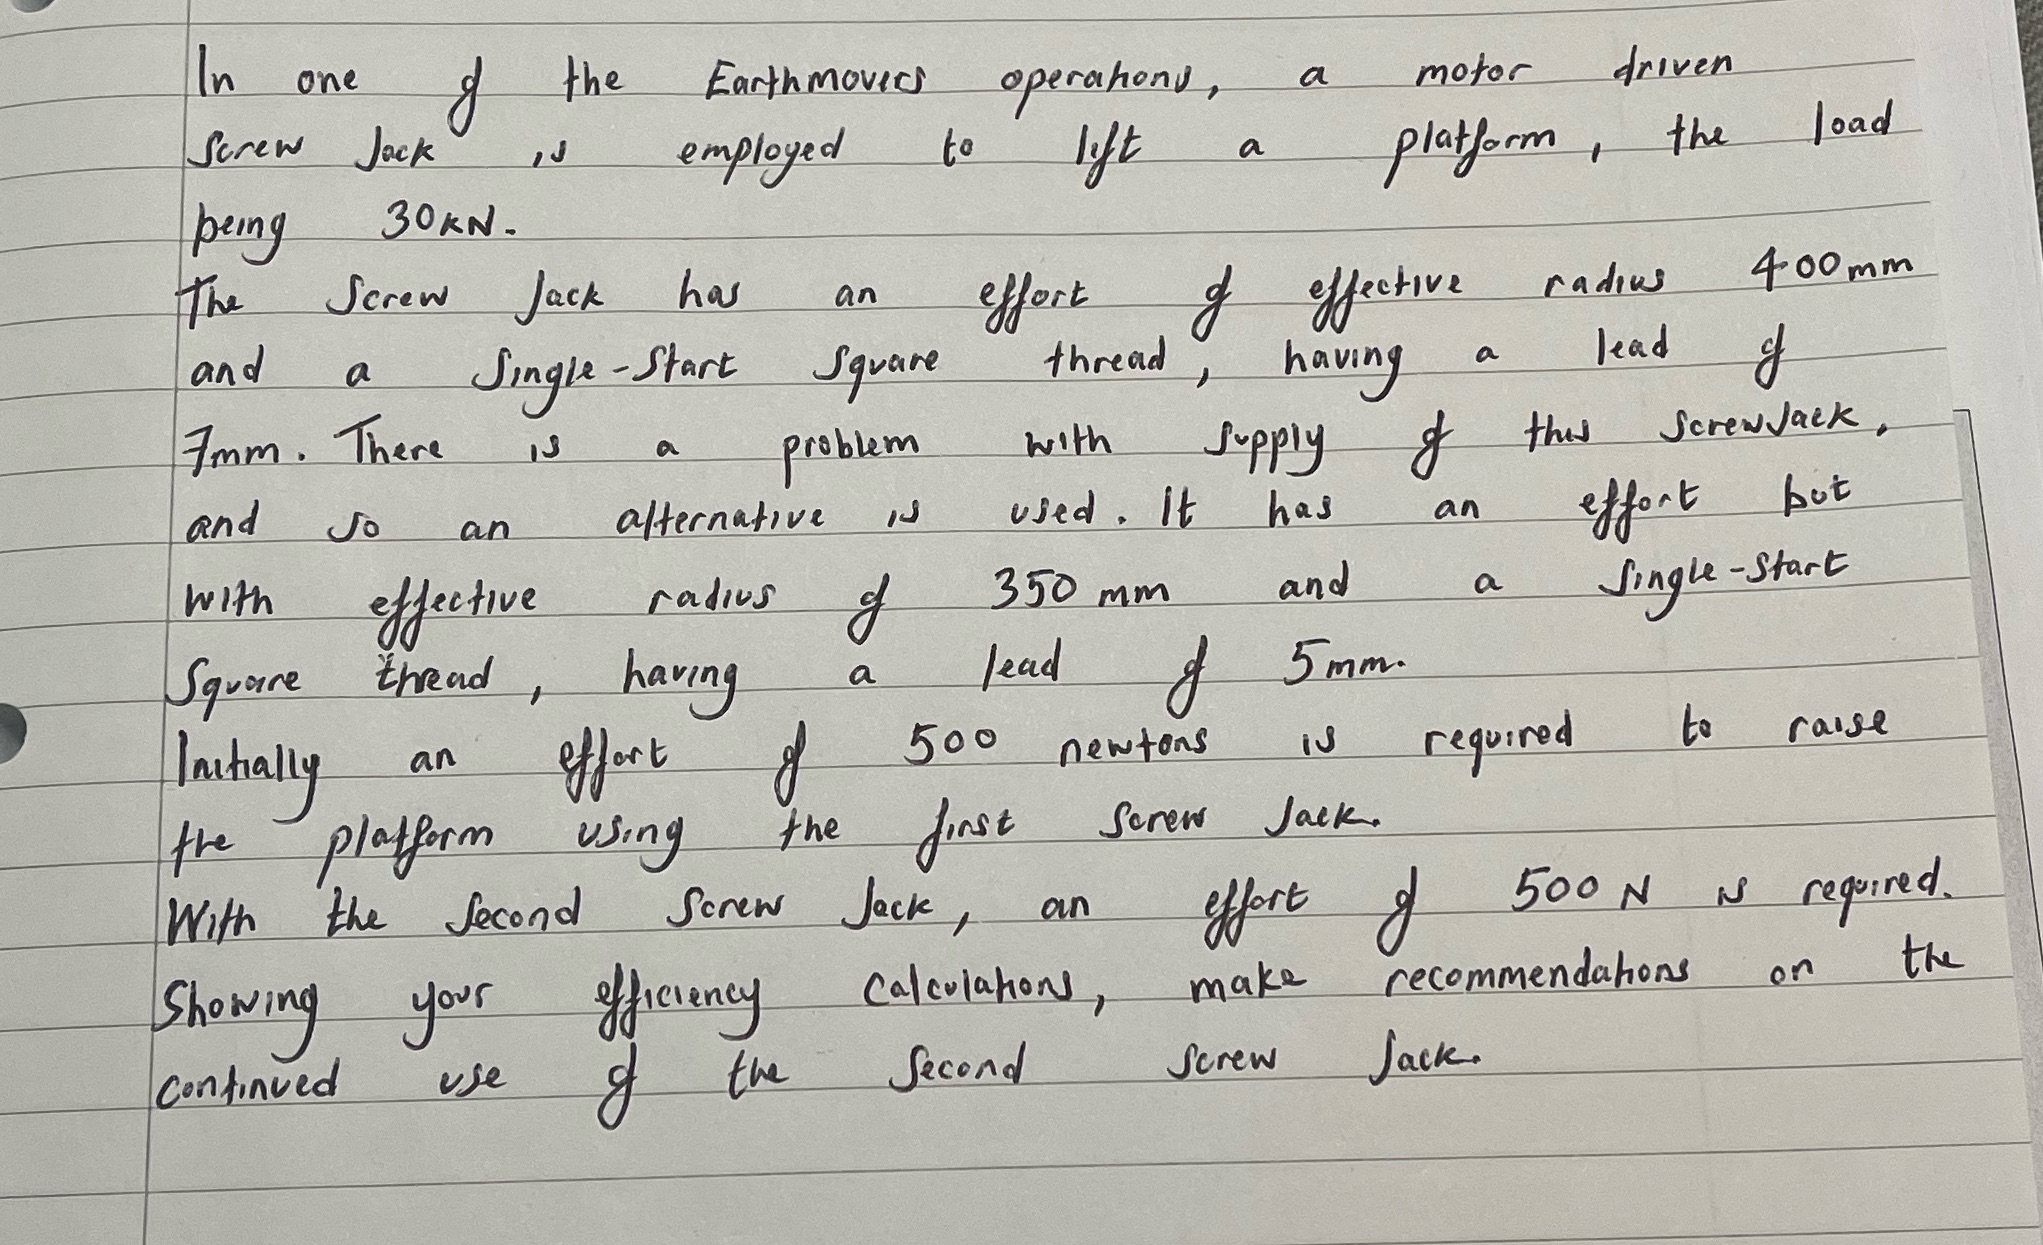 In one of the Earthmovers operations, a motor driven
Screw Jack is employed to lift a platform, the load
being 30kN.
The Screw Jack has an effort of effective radius 400mm
and a Single-Start Square thread, having a lead of
7mm. There is a problem with supply of this ScrewJack,
and so an alternative is used. It has an effort but
with effective radius of 350 mm and a Single-Start
Square thread, having a lead of 5mm.
Initially an effort of 500 newtons is required to raise
the platform using the first Screw Jack.
With the Second Screw Jack, an effort of 500 N is required.
Showing your efficiency Calculations, make recommendations on the
continued use of the Second Screw Jack.